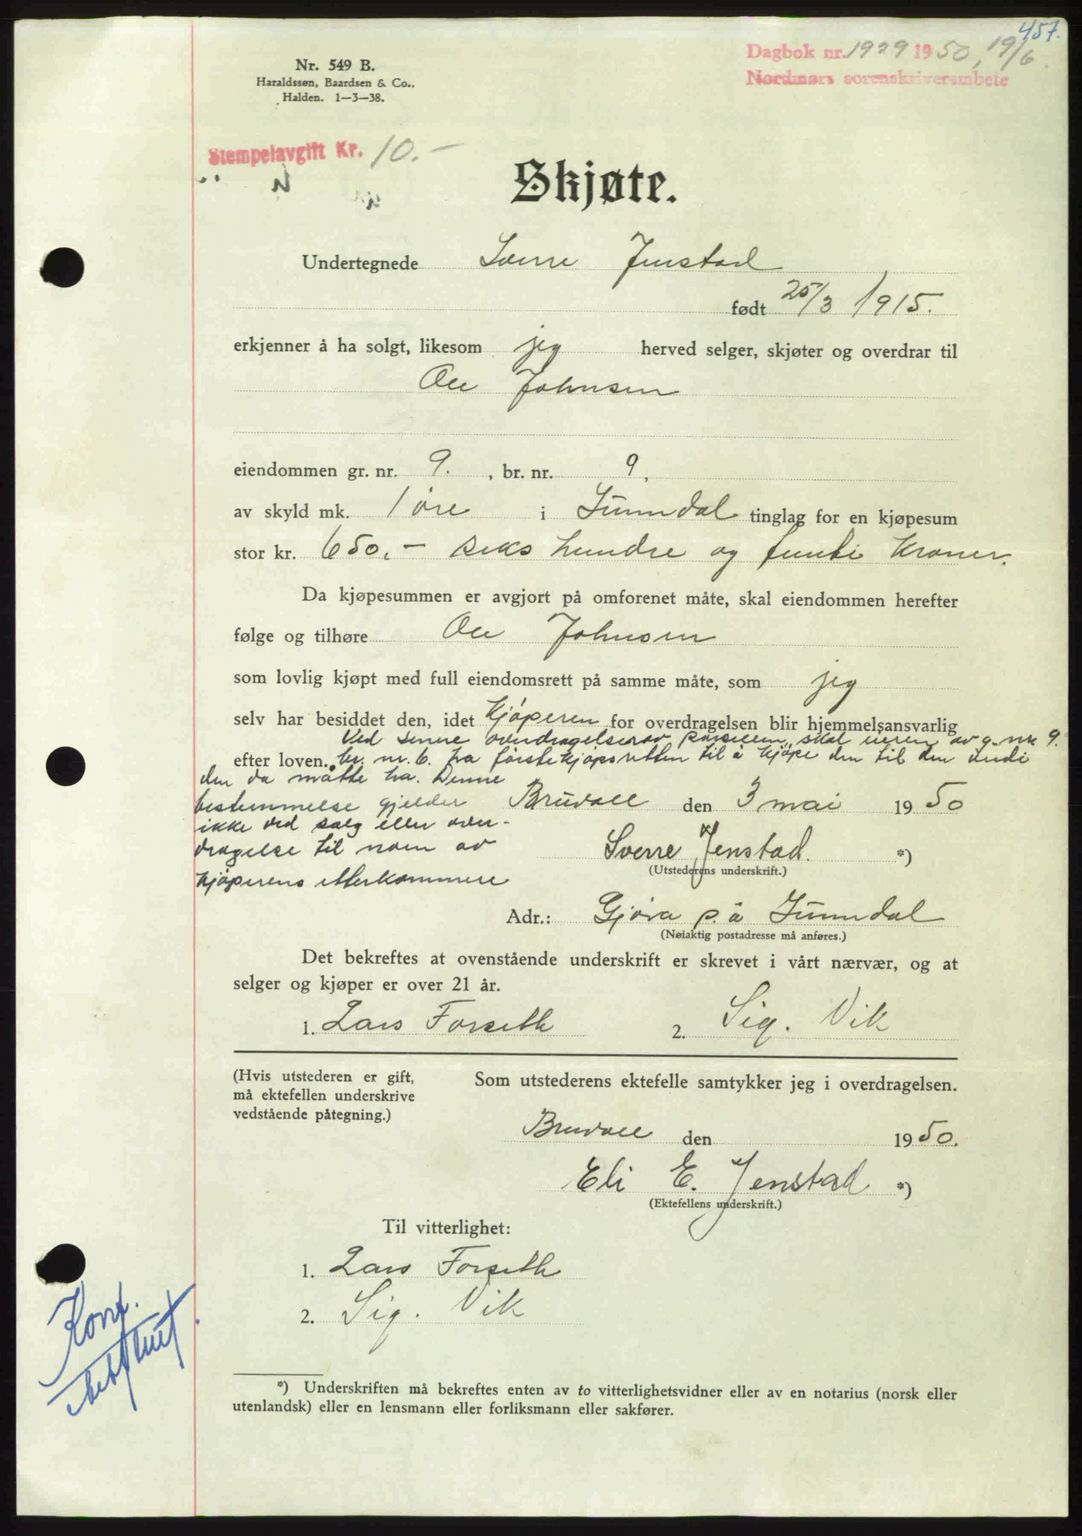 457.
Dagbok nr. 1929 1950, 19/6
Nordmørs sorenskriverembete
Nr. 549 B.
Haraldssen, Baardsen & Co..
Halden. 1—3—38.
Stempelavgift Kr. 10.-
Skjøte.
Undertegnede Sverre Jenstad
født 25/3 1915.
erkjenner å ha solgt, likesom jeg herved selger, skjøter og overdrar til
Ole Johnsen
eiendommen gr. nr. 9. , br. nr. 9,
av skyld mk. 1 øre i Sunndal tinglag for en kjøpesum
stor kr. 650,- seks hundre og femti kroner.
Da kjøpesummen er avgjort på omforenet måte, skal eiendommen herefter
følge og tilhøre Ole Johnsen
som lovlig kjøpt med full eiendomsrett på samme måte, som jeg
selv har besiddet den, idet kjøperen for overdragelsen blir hjemmelsansvarlig
Ved senere overdragelser av parsellen, skal eieren av g. nr. 9.
efter loven. br. nr. 6. ha förstekjøpsretten til å kjøpe den til den verdi
den da måtte ha. Denne
bestemmelse gjelder Bruvoll den 3 mai 1950
ikke ved salg eller over-
dragelse til noen av Sverre Jenstad. *)
(Utstederens underskrift.)
kjøperens etterkommere
Adr.: Gjøra p. å Sunndal
(Nøiaktig postadresse må anføres.)
Det bekreftes at ovenstående underskrift er skrevet i vårt nærvær, og at
selger og kjøper er over 21 år.
1. Lars Forseth 2. Sig. Vik
(Hvis utstederen er gift, Som utstederens ektefelle samtykker jeg i overdragelsen.
må ektefellen underskrive
vedstående påtegning.)
Bruvoll den 1950.
Eli E. Jenstad *)
(Ektefellens underskrift.)
Til vitterlighet:
1. Lars Forseth
2. Sig. Vik
Konf.
*) Underskriften må bekreftes enten av to vitterlighetsvidner eller av en notarius (norsk eller
utenlandsk) eller en lensmann eller forliksmann eller sakfører.